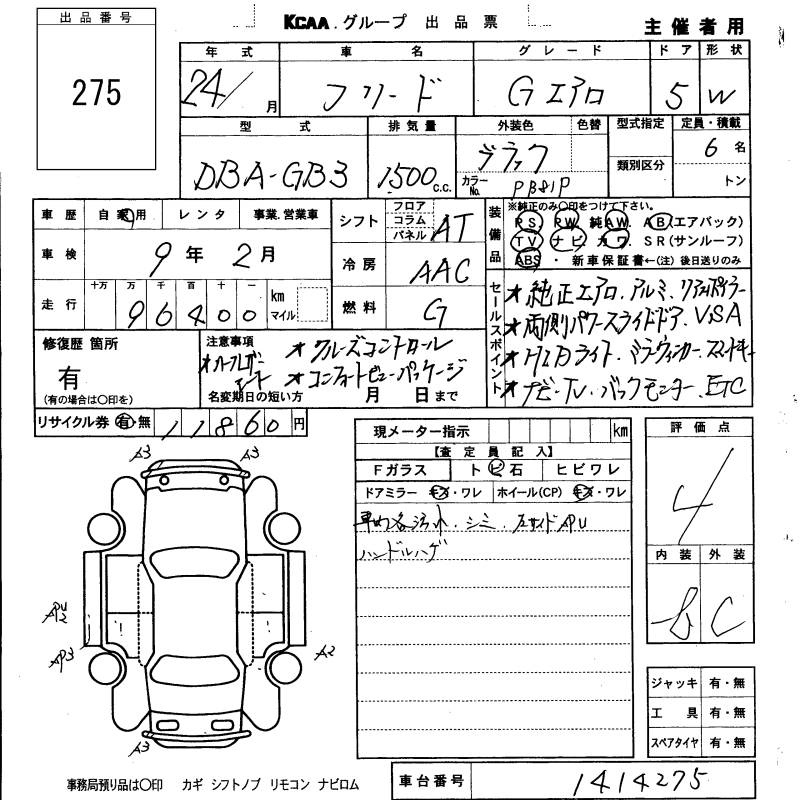 出品番号
275
KCAA.グループ 出品票
主催者用
年式 車名 グレード ドア 形状
24/ 月 フリード Gエアロ 5 W
型式 排気量 外装色 色替 型式指定 定員・積載
DBA-GB3 1500 c.c. ブラック 類別区分 6名
カラーNo. PB81P トン
車歴 自家用 レンタ 事業.営業車
シフト フロア コラム パネル AT
車検 9年2月
冷房 AAC
走行 十万 万 千 百 十 一 km マイル
96400
燃料 G
装備品 ※純正のみ〇印をつけて下さい。
PS. PW. 純AW. AB(エアバック)
TV ナビ カワ. SR(サンルーフ)
ABS ・ 新車保証書←(注) 後日送りのみ
セールスポイント
★純正エロ. アルミ. リアスポイラー
★両側パワースライドドア. VSA
★HIDライト. ミラーウィンカー. スマートキー
★ナビ・TV. バックモニター. ETC
修復歴 箇所
有
(有の場合は〇印を)
注意事項
★クルーズコントロール
★コンフォートビューパッケージ
名変期日の短い方 月 日まで
リサイクル券 有・無 11860円
現メーター指示 km
【査定員記入】
Fガラス トビ石 ヒビワレ
ドアミラー キズ・ワレ ホイール(CP) キズ・ワレ
車内各汚れ. シミ. 左サイドAPU
ハンドルハゲ
評価点
4
内装 外装
b C
A3 A3
APU2
AP3 A2
A3 A3
ジャッキ 有・無
工具 有・無
スペアタイヤ 有・無
事務局預り品は〇印 カギ シフトノブ リモコン ナビロム
車台番号 1414275